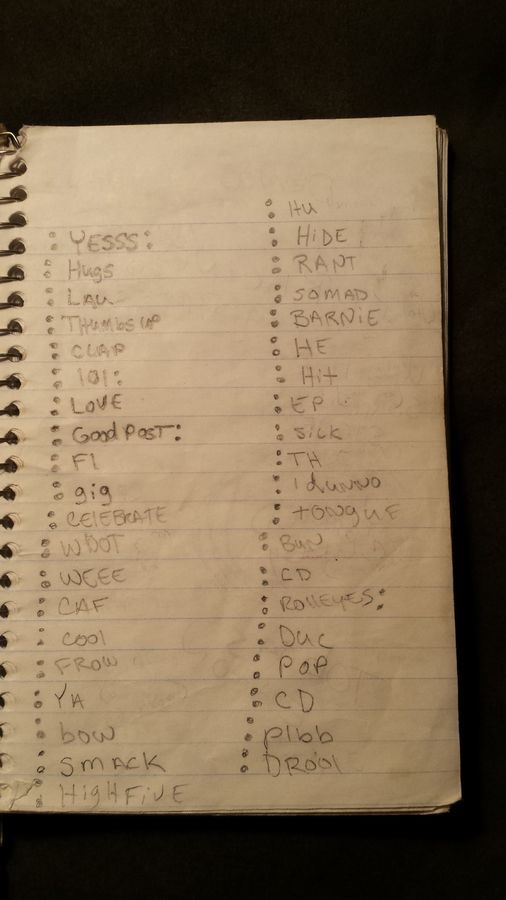 : YESSS:
: Hugs
: LAU
: THumbs up
: CLAP
: 101:
: LOVE
: Good Post:
: FI
: gig
: CElEBRATE
: WOOT
: WEEE
: CAF
: cool
: FROW
: YA
: bow
: SMACK
: HigH FiVE
: HU
: HiDE
: RANT
: SOMAD
: BARNiE
: HE
: Hit
: EP
: Sick
: TH
: I dunno
: tONgUE
: BUN
: CD
: ROllEyES:
: DUC
: POP
: CD
: plbb
: DROOl